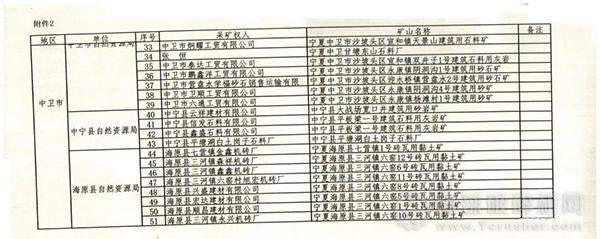 附件2
地区 单位 序号 采矿权人 矿山名称 备注
中卫市自然资源局 33 中卫市炳耀工贸有限公司 宁夏中卫市沙坡头区宣和镇天景山建筑用石料矿
34 张恒 宁夏中卫甘塘东山石料厂
35 中卫市泰达工贸有限公司 宁夏中卫市沙坡头区宣和镇双井子1号建筑石料用灰岩
36 中卫市鹏鑫洋工贸有限公司 宁夏中卫市沙坡头区永康镇阴洞沟1号建筑用砂石矿
37 中卫市营盘水学福砂石销售运输有限 宁夏中卫市沙坡头区迎水桥镇营盘水2号建筑用砂石矿
中卫市 38 中卫市卫顺工贸有限公司 宁夏中卫市沙坡头区永康镇阴洞沟4号建筑用砂矿
39 中卫市六通工贸有限公司 宁夏中卫市沙坡头区永康镇杨滩村1号建筑用砂矿
40 中宁县云祥建材有限公司 中宁县大战场宽口井建筑用砂岩矿
中宁县自然资源局 41 中宁县信发石料有限公司 中宁县平板梁一号建筑石料用灰岩矿
42 中宁县鑫盛石料有限公司 中宁县平板梁二号建筑石料用灰岩矿
43 中宁县平塘湖白土岗子石料厂 中宁县平塘湖白土岗子石料厂
44 海原县七营镇金鑫机砖厂 宁夏海原县七营镇1号砖瓦用黏土矿
45 海原县三河镇森祥机砖厂 宁夏海原县三河镇六窑12号砖瓦用黏土矿
46 海原县三河镇鑫达机砖厂 宁夏海原县三河镇六窑6号砖瓦用黏土矿
海原县自然资源局 47 海原县三河镇六窑村旭宏机砖厂 宁夏海原县三河镇六窑11号砖瓦用黏土矿
48 海原县兴盛建材有限公司 宁夏海原县三河镇六窑8号砖瓦用黏土矿
49 海原县宏达建材有限公司 宁夏海原县三河镇六窑5号砖瓦用黏土矿
50 海原县顺昌建材有限公司 宁夏海原县三河镇六窑1号砖瓦用黏土矿
51 海原县三河镇永兴机砖厂 宁夏海原县三河镇六窑10号砖瓦用黏土矿